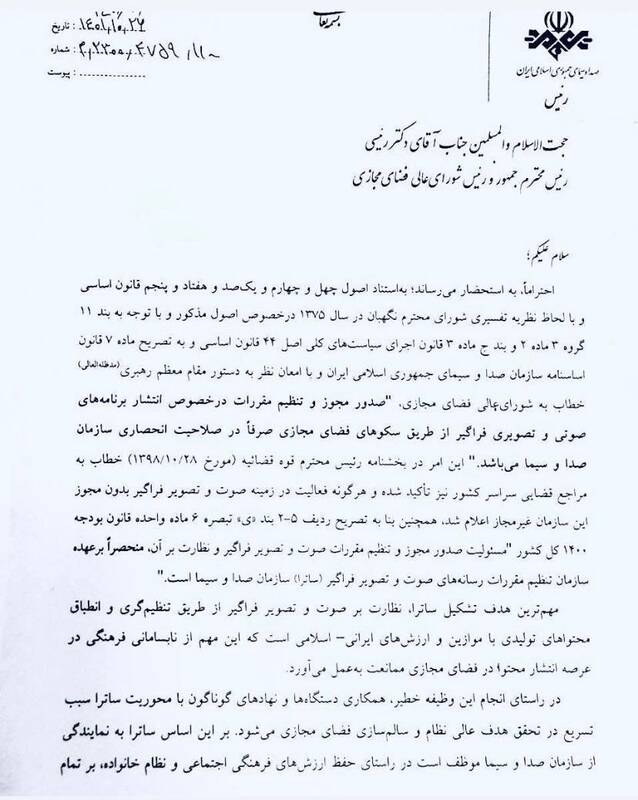 بسمه تعالی
تاریخ: ۱۴۰۱/۱۰/۲۴
شماره:
پیوست: ................
صدا و سیمای جمهوری اسلامی ایران
رئیس
حجت الاسلام والمسلمین جناب آقای دکتر رئیسی
رئیس محترم جمهور و رئیس شورای عالی فضای مجازی
سلام علیکم؛
احتراماً، به استحضار می‌رساند؛ به‌استناد اصول چهل و چهارم و یک‌صد و هفتاد و پنجم قانون اساسی
و با لحاظ نظریه تفسیری شورای محترم نگهبان در سال ۱۳۷۵ درخصوص اصول مذکور و با توجه به بند ۱۱
گروه ۳ ماده ۲ و بند ج ماده ۳ قانون اجرای سیاست‌های کلی اصل ۴۴ قانون اساسی و به تصریح ماده ۷ قانون
اساسنامه سازمان صدا و سیمای جمهوری اسلامی ایران و با امعان نظر به دستور مقام معظم رهبری(مدظله‌العالی)
خطاب به شورای‌عالی فضای مجازی، "صدور مجوز و تنظیم مقررات درخصوص انتشار برنامه‌های
صوتی و تصویری فراگیر از طریق سکوهای فضای مجازی صرفاً در صلاحیت انحصاری سازمان
صدا و سیما می‌باشد." این امر در بخشنامه رئیس محترم قوه قضائیه (مورخ ۱۳۹۸/۱۰/۲۸) خطاب به
مراجع قضایی سراسر کشور نیز تأکید شده و هرگونه فعالیت در زمینه صوت و تصویر فراگیر بدون مجوز
این سازمان غیرمجاز اعلام شد، همچنین بنا به تصریح ردیف ۵-۲ بند «ی» تبصره ۶ ماده واحده قانون بودجه
۱۴۰۰ کل کشور "مسئولیت صدور مجوز و تنظیم مقررات صوت و تصویر فراگیر و نظارت بر آن، منحصراً برعهده
سازمان تنظیم مقررات رسانه‌های صوت و تصویر فراگیر (ساترا) سازمان صدا و سیما است."
مهم‌ترین هدف تشکیل ساترا، نظارت بر صوت و تصویر فراگیر از طریق تنظیم‌گری و انطباق
محتواهای تولیدی با موازین و ارزش‌های ایرانی- اسلامی است که این مهم از نابسامانی فرهنگی در
عرصه انتشار محتوا در فضای مجازی ممانعت به‌عمل می‌آورد.
در راستای انجام این وظیفه خطیر، همکاری دستگاه‌ها و نهادهای گوناگون با محوریت ساترا سبب
تسریع در تحقق هدف عالی نظام و سالم‌سازی فضای مجازی می‌شود. بر این اساس ساترا به نمایندگی
از سازمان صدا و سیما موظف است در راستای حفظ ارزش‌های فرهنگی اجتماعی و نظام خانواده، بر تمام